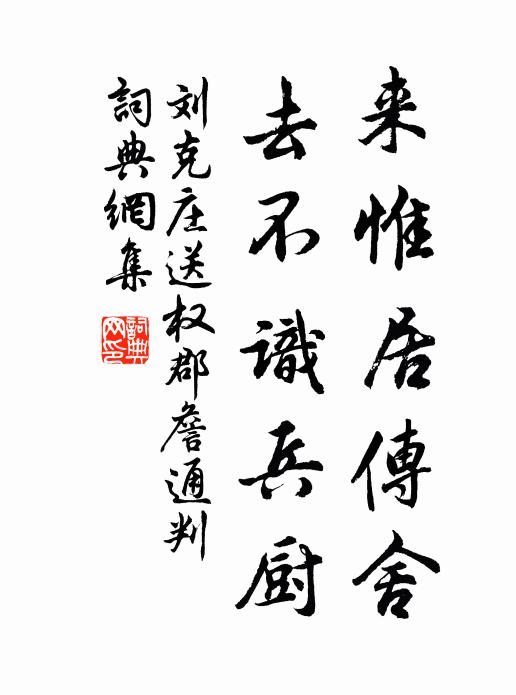 来惟居傳舍
去不識兵厨
刘克庄送权郡詹通判
詞典網集
詞典网印